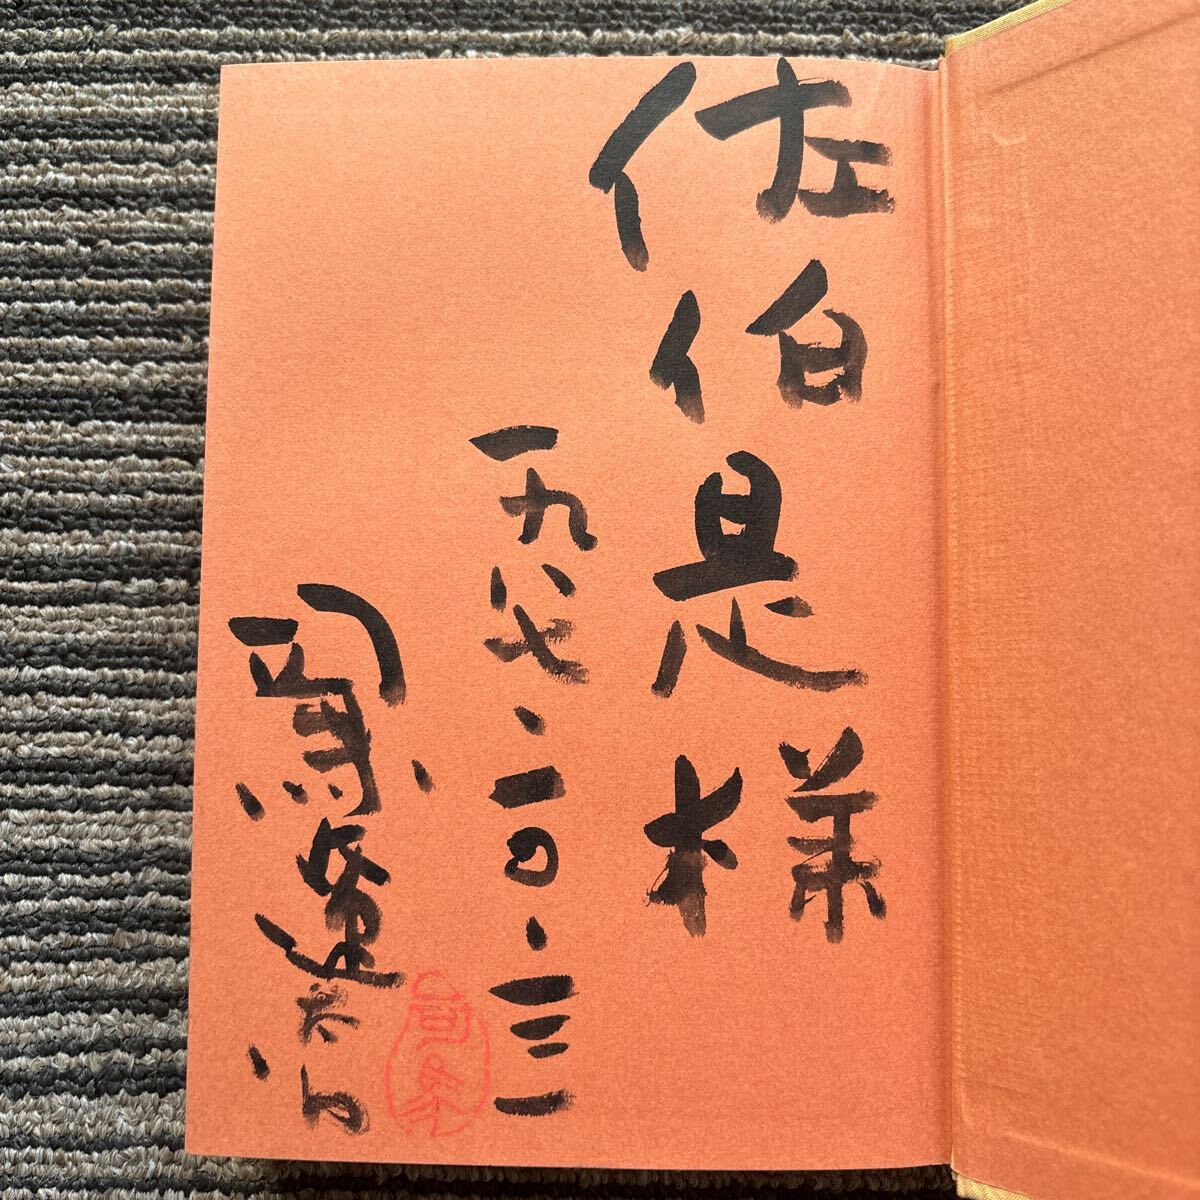 佐伯是様
一九八七、一〇、三一
司馬遼太郎